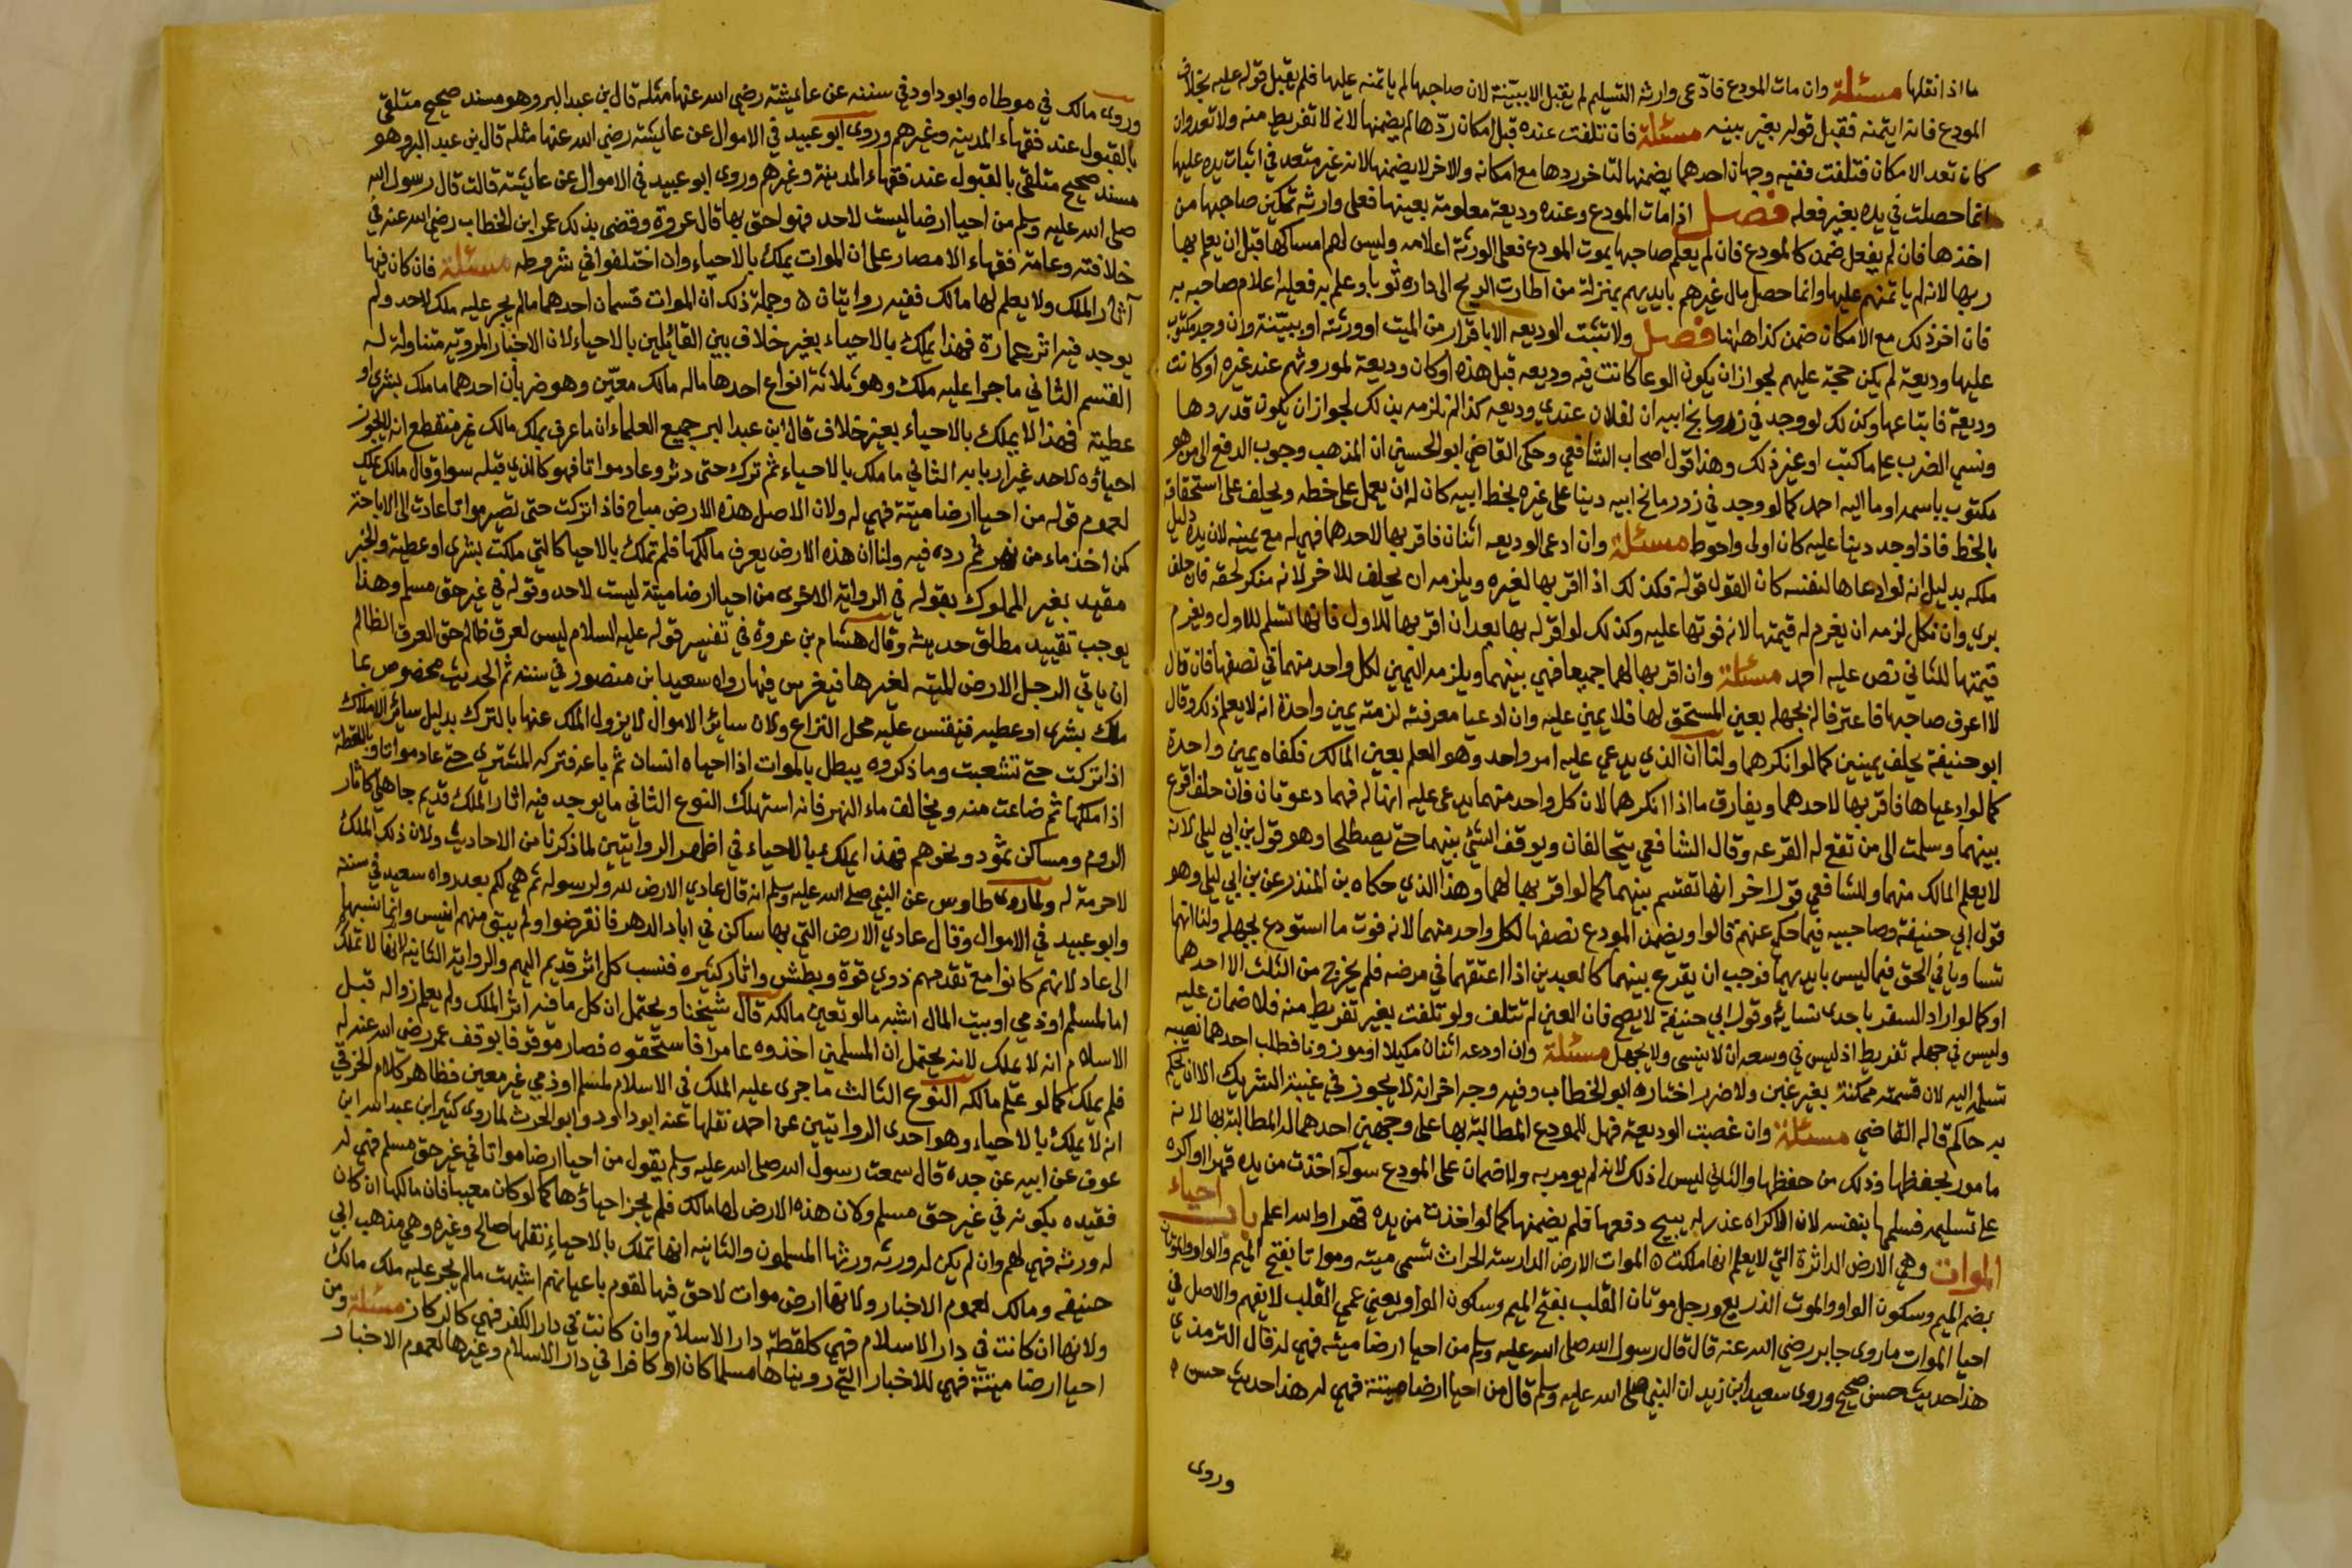 ما اذا نقلها مسئلة وان مات المودع فادّعى وارثه التسليم لم يقبل الا ببيّنة لان صاحبها لم ياتمنه عليها فلم يقبل قوله عليه بخلاف
المودع فانه ايتمنه فقبل قوله بغير بينه مسئلة فان تلفت عنده قبل امكان ردّها لم يضمنها لانه لا تفريط منه ولا تعد وان
كان بعد الامكان فتلفت ففيه وجهان احدهما يضمنها لتاخر ردها مع امكانه والاخر لا يضمنها لانه غير متعد في اثبات يده عليها
انما حصلت في يده بغير فعله فصل اذا مات المودع وعنده وديعة معلومة بعينها فعلى وارثه تمكين صاحبها من
اخذها فان لم يفعل ضمن كالمودع فان لم يعلم صاحبها بموت المودع فعلى الورثة اعلامه وليس لهم امساكها قبل ان يعلم بها
ربها لانه لم ياتمنهم عليها وانما حصل مال غيرهم بايديهم بمنزلة من اطارت الريح الى داره ثوبا وعلم به فعليه اعلام صاحبه به
فان اخر ذلك مع الامكان ضمن كذا ههنا فصل ولا تثبت الوديعه الا باقرار من الميت او ورثته او ببيّنة وان وجد مكتوب
عليها وديعة لم يكن حجة عليهم لجواز ان يكون الوعا كانت فيه وديعه قبل هذه او كان وديعة لموروثهم عند غيره او كانت
وديعة فابتاعها وكذلك لو وجد في زور ما نخ ابيه ان لفلان عندي وديعه كذا لم تلزمه بذلك لجواز ان يكون قد ردها
ونسي الضرب على ما كتب او غير ذلك وهذا قول اصحاب الشافعي وحكى القاضي ابو الحسين ان المذهب وجوب الدفع الى من هو
مكتوب باسمه اوما اليه احمد كما لو وجد في زور مانخ ابيه دينا على غيره بخط ابيه كان له ان يعمل على خطه ويحلف على استحقاقه
بالخط فاذا وجد دينا عليه كان اولى واحوط مسئلة وان ادعى الوديعه اثنان فاقر بها لاحدهما فهي له مع يمينه لان يده دليل
ملكه بدليل انه لو ادعاها لنفسه كان القول قوله فكذلك اذا اقر بها لغيره ويلزمه ان يحلف للاخر لانه منكر لحقه فان حلف
بري وان نكل لزمه ان يغرم له قيمتها لانه فوتها عليه وكذلك لو اقر له بها بعد ان اقر بها للاول فانها تسلم للاول ويغرم
قيمتها للثاني نص عليه احمد مسئلة وان اقر بها لهما جميعا فهي بينهما ويلزمه اليمين لكل واحد منهما في نصفها فان قال
لا اعرف صاحبها فاعترفا له بجهله بعين المستحق لها فلا يمين عليه وان ادعيا معرفته لزمته يمين واحدة انه لا يعلم ذلك وقال
ابو حنيفة يحلف يمينين كما لو انكرهما ولنا ان الذي يدعي عليه امر واحد وهو العلم بعين المالك فكفاه يمين واحدة
كما لو ادعياها فاقر بها لاحدهما ويفارق ما اذا انكرهما لان كل واحد منهما يدعي عليه انها له فهما دعوتان فان حلف اقرع
بينهما وسلمت الى من تقع له القرعه وقال الشافعي يتحالفان ويوقف الشي بينهما حتى يصطلحا وهو قول بن ابي ليلى لانه
لا يعلم المالك منهما وللشافعي قول اخر انها تقسم بينهما كما لو اقر بها لهما وهذا الذي حكاه بن المنذر عن بن ابي ليلى وهو
قول ابي حنيفة وصاحبيه فيما حكي عنهم قالوا ويضمن المودع نصفها لكل واحد منهما لانه فوت ما استودع بجهله ولنا انهما
تساويا في الحق فيما ليس بايديهما فوجب ان يقرع بينهما كالعبدين اذا اعتقهما في مرضه فلم يخرج من الثلث الا احدهما
او كما لو اراد السفر باحدى نسايه وقول ابي حنيفة لا يصح فان العين لم تتلف ولو تلفت بغير تفريط منه فلا ضمان عليه
وليس في جهله تفريط اذ ليس في وسعه ان لا ينسى ولا يجهل مسئلة وان اودعه اثنان مكيلا او موزونا فطلب احدهما نصيبه
تسليمه اليه لان قسمته ممكنة بغير غبن ولا ضرر اختاره ابو الخطاب وفيه وجه اخر انه لا يجوز في غيبة الشريك الا ان يحكم
به حاكم قاله القاضي مسئلة وان غصبت الوديعة فهل للمودع المطالبة بها على وجهين احدهما له المطالبة بها لانه
مامور بحفظها وذلك من حفظها والثاني ليس له ذلك لانه لم يومر به ولا ضمان على المودع سوآء اخذت من يده قهرا او اكره
على تسليمه فسلمها بنفسه لان الاكراه عذر له يبيح دفعها فلم يضمنها كما لو اخذت من يده قهرا والله اعلم باب احياء
الموات وهي الارض الداثرة التي لا يعلم انها ملكت ٥ الموات الارض الدارسة الخراب تسمى ميته ومواتا بفتح الميم والواو والموتان
بضم الميم وسكون الواو والموت الذريع ورجل موتان القلب بفتح الميم وسكون الواو يعني عمي القلب لا يفهم والاصل في
احيا الموات ما روى جابر رضي الله عنه قال قال رسول الله صلى الله عليه وسلم من احيا ارضا ميته فهي له قال الترمذي
هذا حديث حسن صحيح وروى سعيد ابن زيد ان النبي صلى الله عليه وسلم قال من احيا ارضا ميتة فهي له هذا حديث حسن
وروى
وروى مالك في موطاه وابو داود في سننه عن عايشة رضي الله عنها مثله قال بن عبد البر وهو مسند صحيح متلقى
بالقبول عند فقهاء المدينه وغيرهم وروى ابو عبيد في الاموال عن عايشة رضي الله عنها مثله قال بن عبد البر وهو
مسند صحيح متلقى بالقبول عند فقهاء المدينة وغيرهم وروى ابو عبيد في الاموال عن عايشة قالت قال رسول الله
صلى الله عليه وسلم من احيا ارضا ليست لاحد فهو احق بها قال عروة وقضى بذلك عمر ابن الخطاب رضي الله عنه في
خلافته وعامة فقهاء الامصار على ان الموات يملك بالاحياء وان اختلفوا في شروطه مسئلة فان كان فيها
آثار الملك ولا يعلم لها مالك ففيه روايتان ٥ وجملة ذلك ان الموات قسمان احدهما ما لم يجر عليه ملك لاحد ولم
يوجد فيه اثر عمارة فهذا يملك بالاحياء بغير خلاف بين القائلين بالاحياء لان الاخبار المروية متناولة له
القسم الثاني ما جرا عليه ملك وهو ثلاثة انواع احدها ماله مالك معيّن وهو ضربان احدهما ما ملك بشرى او
عطية فهذا لا يملك بالاحياء بغير خلاف قال ابن عبد البر جميع العلماء ان ما عرف بملك مالك غير منقطع انه لا يجوز
احياؤه لاحد غير اربابه الثاني ما ملك بالاحياء ثم ترك حتى دثر وعاد مواتا فهو كالذي قبله سوا وقال مالك يملك
لعموم قوله من احيا ارضا ميتة فهي له ولان الاصل هذه الارض مباح فاذا تركت حتى تصير مواتا عادت الى الاباحة
كمن اخذ ماء من نهر ثم رده فيه ولنا ان هذه الارض يعرف مالكها فلم تملك بالاحيا كالتي ملكت بشرى او عطية والخبر
مقيد بغير المملوك بقوله في الرواية الاخرى من احيا ارضا ميتة ليست لاحد وقوله في غير حق مسلم وهذا
يوجب تقييد مطلق حديثه وقال هشام بن عروة في تفسير قوله عليه السلام ليس لعرق ظالم حق العرق الظالم
ان ياتي الرجل الارض الميته لغيرها فيغرس فيها رواه سعيد ابن منصور في سننه ثم الحديث مخصوص بما
ملك بشرى او عطيه فنقيس عليه محل النزاع ولان سائر الاموال لا يزول الملك عنها بالترك بدليل سائر الاملاك
اذا تركت حتى تشعبت وما ذكروه يبطل بالموات اذا احياه انسان ثم باعه فتركه المشتري حتى عاد مواتا وباللقطة
اذا ملكها ثم ضاعت منه ويخالف ماء النهر فانه استهلك النوع الثاني ما يوجد فيه اثار الملك قديم جاهلي كاثار
الروم ومساكن ثمود ونحوهم فهذا يملك بالاحياء في اظهر الروايتين لما ذكرنا من الاحاديث ولان ذلك الملك
لا حرمة له ولما روى طاوس عن النبي صلى الله عليه وسلم انه قال عادي الارض لله ولرسوله ثم هي لكم بعد رواه سعيد في سننه
وابو عبيد في الاموال وقال عادي الارض التي بها ساكن في اباد الدهر فانقرضوا ولم يبق منهم انيس وانما نسبها
الى عاد لانهم كانوا مع تقدمهم ذوي قوة وبطش واثار كثيره فنسب كل اثر قديم اليهم والرواية الثانيه انها لا تملك
اما لمسلم او ذمي او بيت المال اشبه ما لو تعين مالكه قال شيخنا ويحتمل ان كل ما فيه اثر الملك ولم يعلم زواله قبل
الاسلام انه لا يملك لانه يحتمل ان المسلمين اخذوه عامرا فاستحقوه فصار موقوفا بوقف عمر رضي الله عنه له
فلم يملك كما لو علم مالكه النوع الثالث ما جرى عليه الملك في الاسلام لمسلم او ذمي غير معين فظاهر كلام الخرقي
انه لا يملك بالاحياء وهو احدى الروايتين عن احمد نقلها عنه ابو داود وابو الحرث لما روى كثير ابن عبد الله ابن
عوف عن ابيه عن جده قال سمعت رسول الله صلى الله عليه وسلم يقول من احيا ارضا مواتا في غير حق مسلم فهي له
فقيده بكونه في غير حق مسلم ولان هذه الارض لها مالك فلم يجز احياؤها كما لو كان معينا فان مالكها ان كان
له ورثة فهي لهم وان لم يكن له ورثه ورثها المسلمون والثانيه انها تملك بالاحياء نقلها صالح وغيره وهي مذهب ابي
حنيفه ومالك لعموم الاخبار ولانها ارض موات لا حق فيها لقوم باعيانهم اشبهت ما لم يجر عليه ملك مالك
ولانها ان كانت في دار الاسلام فهي كلقطة دار الاسلام وان كانت في دار الكفر فهي كالركاز مسئلة ومن
احيا ارضا ميتة فهي للاخبار التي رويناها مسلما كان او كافرا في دار الاسلام وغيرها لعموم الاخبار